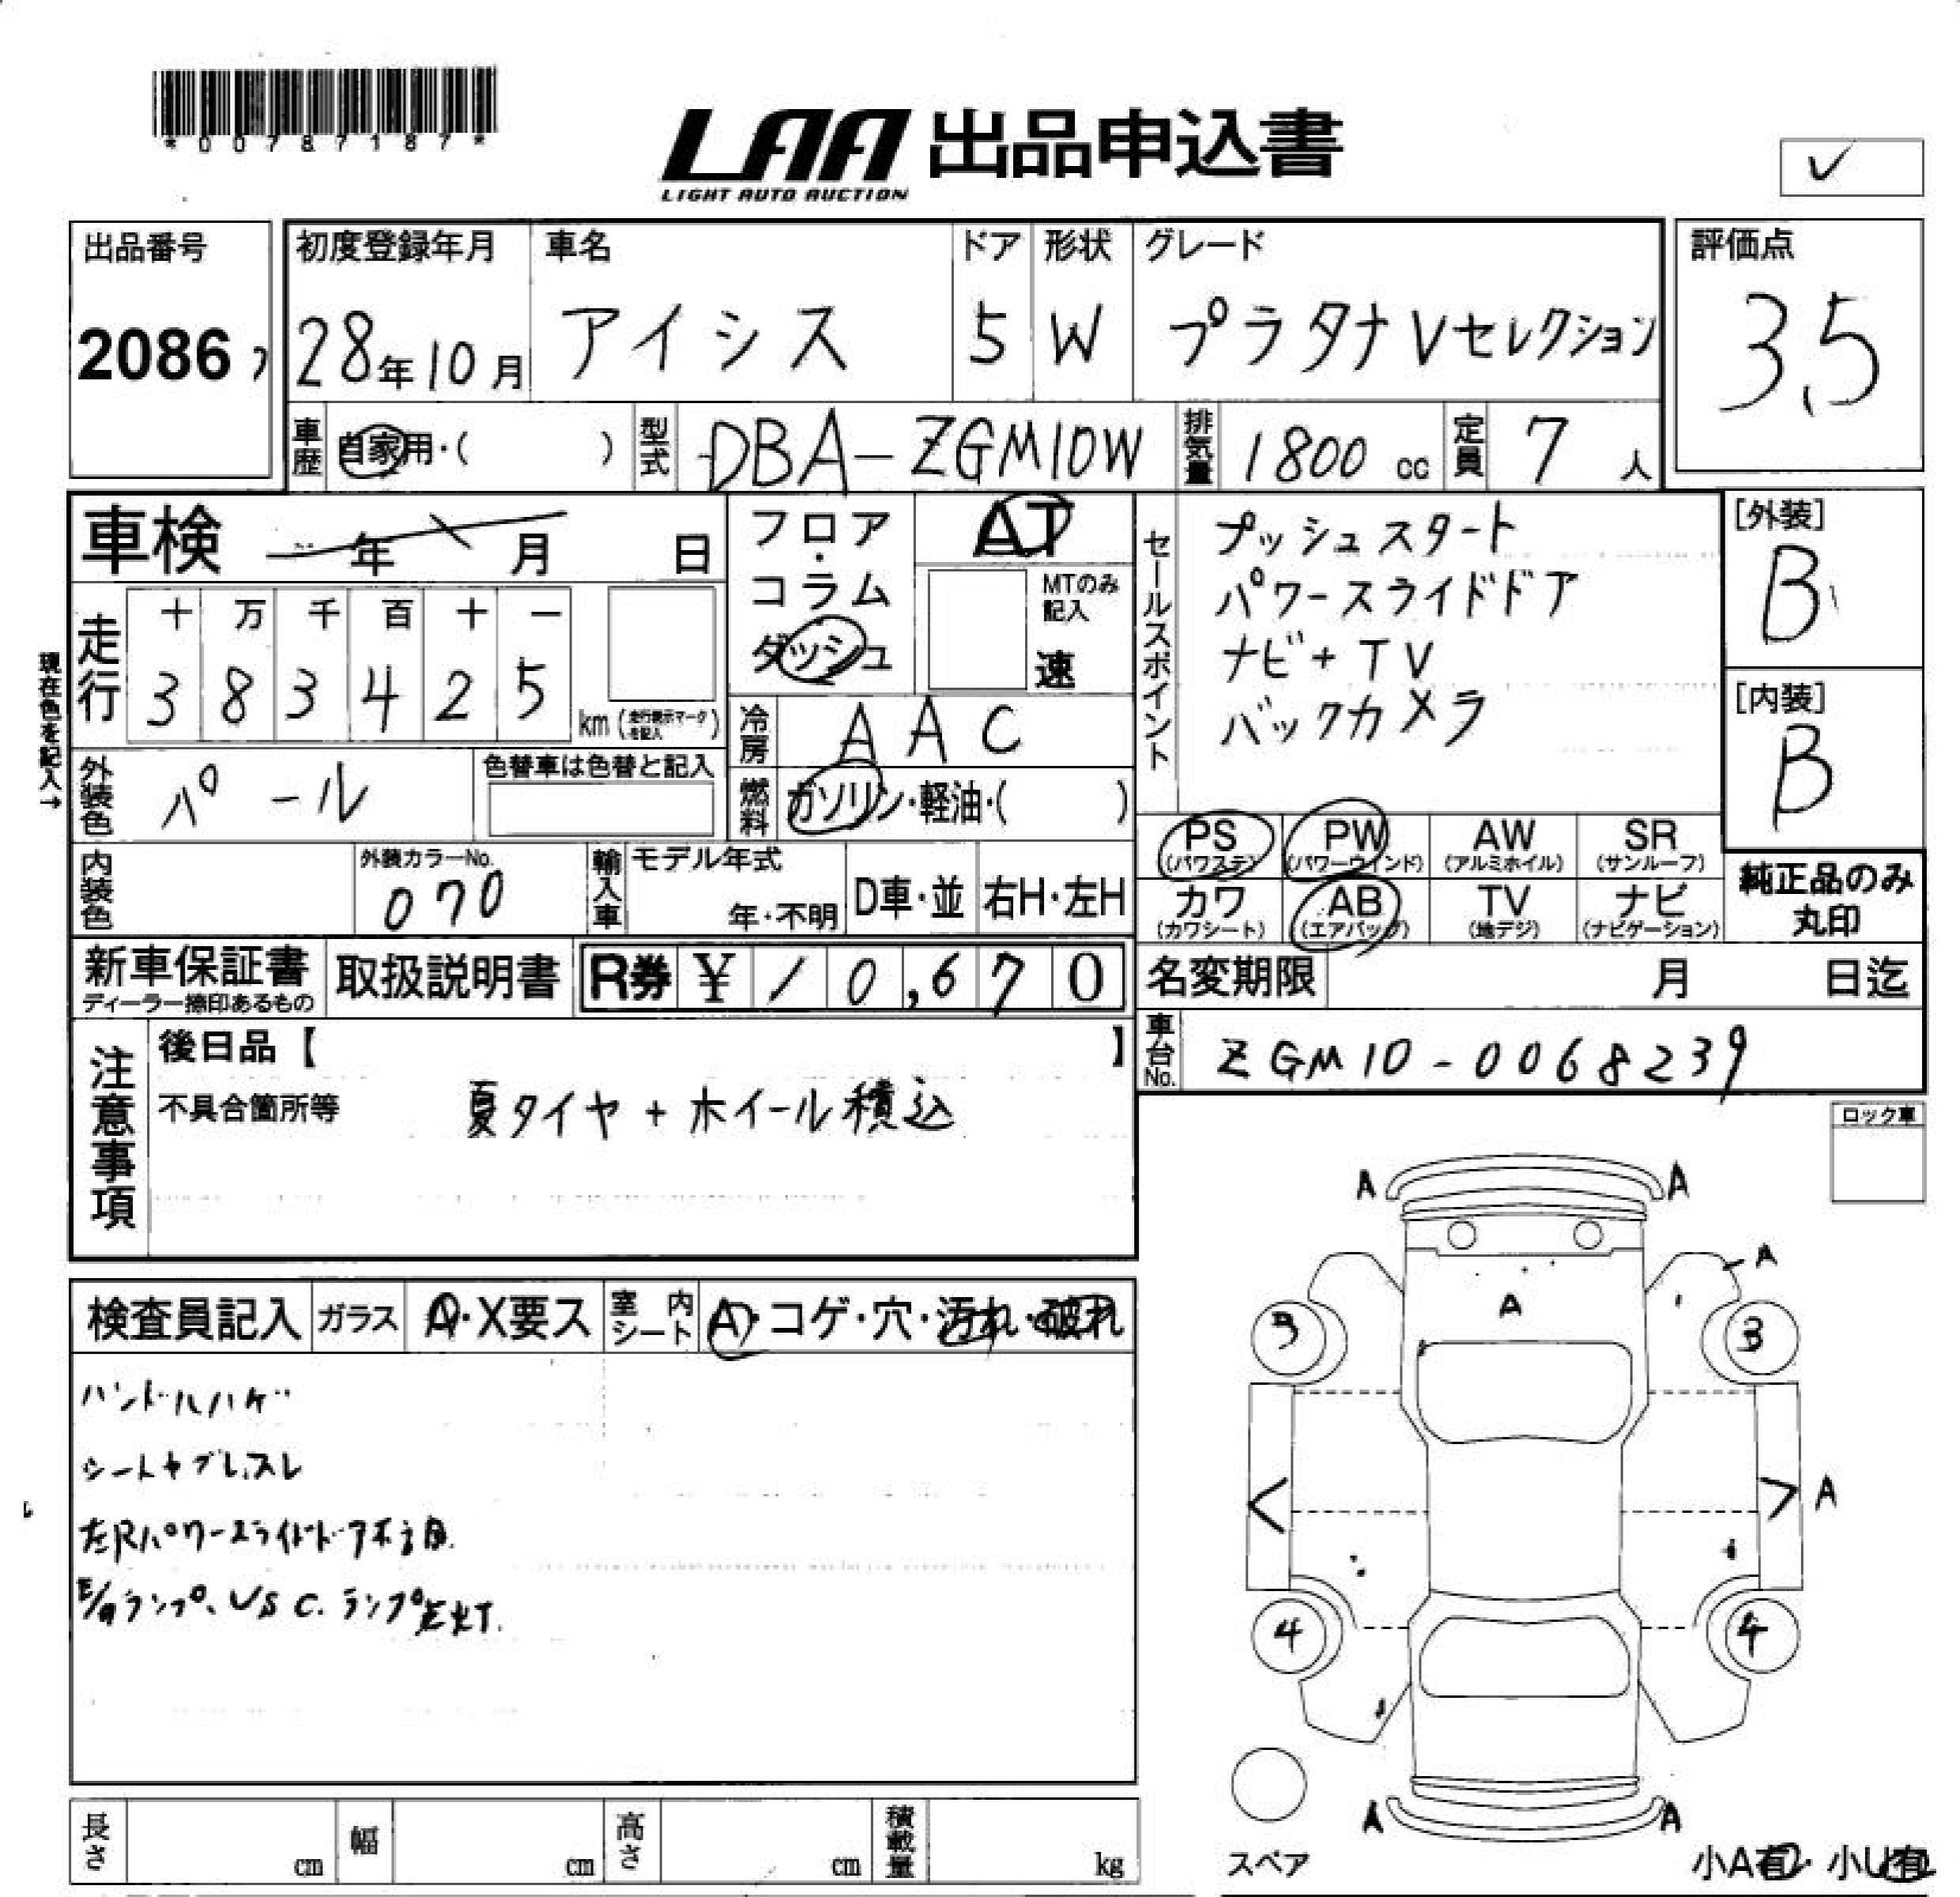 *00787187*
LAA 出品申込書
LIGHT AUTO AUCTION
✓
出品番号 初度登録年月 車名 ドア 形状 グレード 評価点
2086 28年10月 アイシス 5 W プラタナVセレクション 3.5
車歴 自家用・( ) 型式 DBA-ZGM10W 排気量 1800 cc 定員 7 人
車検 年 月 日
フロア・コラム ダッシュ
AT
MTのみ記入
速
セールスポイント
プッシュスタート
パワースライドドア
ナビ+TV
バックカメラ
[外装]
B
[内装]
B
現在色を記入→
走行 十 万 千 百 十 一
3 8 3 4 2 5 km (走行表示マークを記入)
冷房 AAC
外装色 パール 色替車は色替と記入
燃料 ガソリン・軽油・( )
PS (パワステ) PW (パワーウィンド) AW (アルミホイル) SR (サンルーフ)
カワ (カワシート) AB (エアバッグ) TV (地デジ) ナビ (ナビゲーション)
純正品のみ丸印
内装色 外装カラーNo. 070 輸入車 モデル年式 年・不明 D車・並 右H・左H
新車保証書 ディーラー捺印あるもの 取扱説明書 R券 ¥ 10,670
名変期限 月 日迄
車台No. ZGM10-0068239
注意事項
後日品【 】
不具合箇所等 夏タイヤ+ホイール積込
ロック車
検査員記入 ガラス A・X要ス 室内シート A・コゲ・穴・汚れ・破れ
ハンドルハゲ
シートヤブレ、スレ
左Rパワースライドドア不良
E/gランプ、VSC.ランプ点灯.
A A
A
A
3 3
A
4 4
A A
スペア
小A有 小U有
長さ cm 幅 cm 高さ cm 積載量 kg